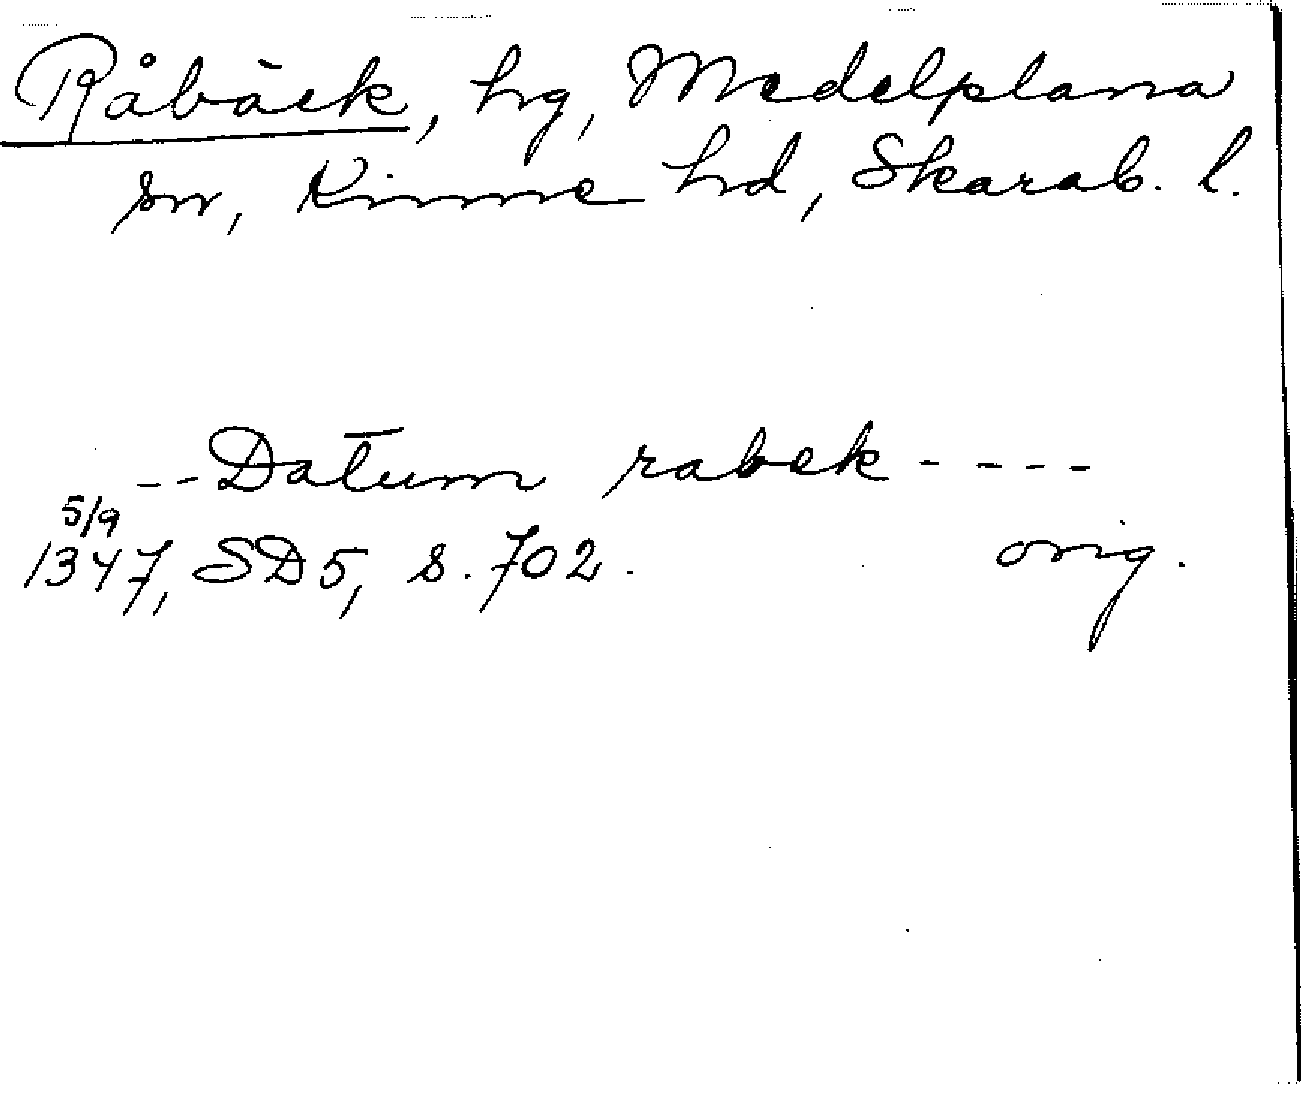 Råbäck, hg, Medelplana
sn, Kinne hd, Skarab. l.
-- Datum rabek ----
5/9
1347, SD5, s. 702. orig.